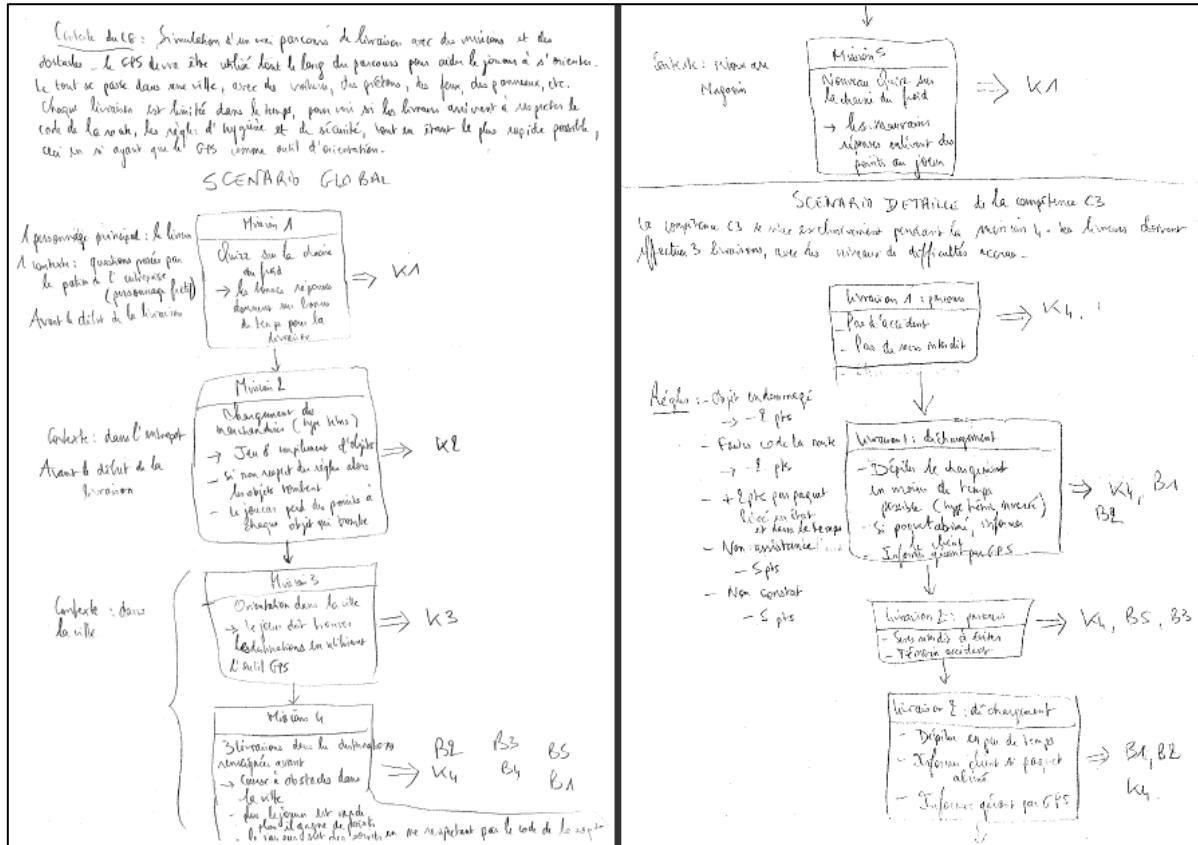 Contexte du LG : Simulation d'un vrai parcours de livraison avec des missions et des
obstacles. Le GPS devra être utilisé tout le long du parcours pour aider le joueur à s'orienter.
Le tout se passe dans une ville, avec des voitures, des piétons, des feux, des panneaux, etc.
Chaque livraison est limitée dans le temps, pour voir si les livreurs arrivent à respecter le
code de la route, les règles d'hygiène et de sécurité, tout en étant le plus rapide possible,
ceci en n'ayant que le GPS comme outil d'orientation.
SCENARIO GLOBAL
1 personnage principal : le livreur
1 contexte : questions posées par
le patron de l'entreprise
(personnage fictif)
Avant le début de la livraison
Mission 1
Quizz sur la chaine
du froid
→ les bonnes réponses
donnent un bonus
de temps pour la
livraison
⇒ K1
Contexte : dans l'entrepot
Avant le début de la
livraison
Mission 2
Chargement des
marchandises (type tetris)
→ Jeu d'empilement d'objets
- Si non respect des règles alors
les objets tombent
- le joueur perd des points à
chaque objet qui tombe
⇒ K2
Contexte : dans
la ville
Mission 3
Orientation dans la ville
→ le joueur doit trouver
les destinations en utilisant
l'outil GPS
⇒ K3
Missions 4
3 livraisons dans les destinations
renseignées avant
→ Course à obstacles dans
la ville
- plus le joueur est rapide
plus il gagne de points
- le joueur perd des points en ne respectant pas le code de la route
⇒ B2 B3 B5
K4 B4 B1
Contexte : retour au
Magasin
Mission 5
Nouveau Quizz sur
la chaine du froid
→ les mauvaises
réponses enlèvent des
points au joueur
⇒ K1
SCENARIO DETAILLE de la compétence C3
La compétence C3 se situe exclusivement pendant la mission 4. Les livreurs doivent
effectuer 3 livraisons, avec des niveaux de difficultés accrus.
Livraison 1 : parcours
- Pas d'accident
- Pas de sens interdit
⇒ K4,
Règles : - Objet endommagé
→ -2 pts
- Fautes code de la route
→ -2 pts
- +2 pts par paquet
livré en état
et dans le temps
- Non-assistance
- 5 pts
- Non constat
- 5 pts
Livraison 1 : déchargement
- Dépiler le chargement
en moins de temps
possible (type tétris inversé)
- Si paquet abîmé, informer
le client
- Informer gérant par GPS
⇒ K4, B1
B2
Livraison 2 : parcours
- Sens interdit à éviter
- Témoin accident
⇒ K4, B5, B3
Livraison 2 : déchargement
- Dépiler en peu de temps
- Informer client si paquet
abîmé
- Informer gérant par GPS
⇒ B1, B2
K4.